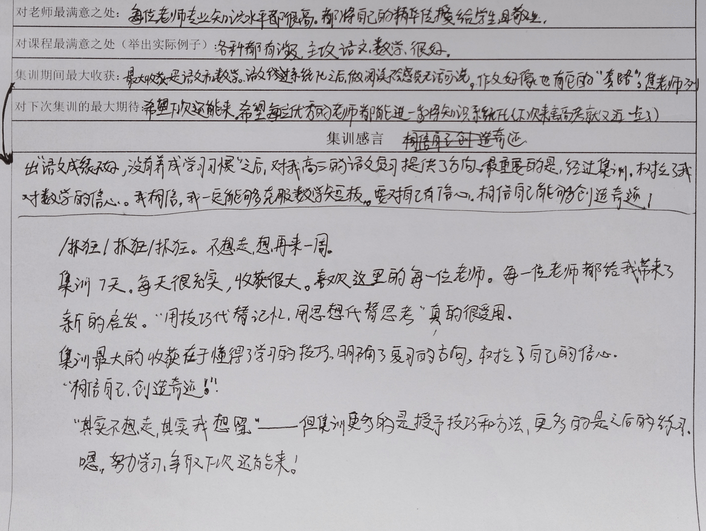 对老师最满意之处:每位老师专业知识水平都很高。都将自己的精华传授给学生,且敬业。
对课程最满意之处(举出实际例子):各科都有涉及,主攻语文数学,很好。
集训期间最大收获:最大收获是语文和数学。语文经过系统化之后,做阅读不感觉无话可说。作文好像也有它的“套路”。焦老师列
对下次集训的最大期待:希望下次还能来。希望每位优秀的老师都能进一步将知识系统化(下次来离高考就又近一些了)
集训感言 相信自己创造奇迹
出“语文成绩不好,没有养成学习习惯”之后,对我高三的语文复习提供了方向。最重要的是,经过集训,树立了我
对数学的信心。我相信,我一定能够克服数学短板。要对自己有信心。相信自己能够创造奇迹!
抓狂!抓狂!抓狂。不想走,想再来一周。
集训7天。每天很充实,收获很大。喜欢这里的每一位老师。每一位老师都给我带来了
新的启发。“用技巧代替记忆,用思想代替思考”真的很受用。
集训最大的收获在于懂得了学习的技巧,明确了复习的方向,树立了自己的信心。
“相信自己,创造奇迹!”
“其实不想走,其实我想留”——但集训更多的是授予技巧和方法,更多的是之后的练习。
嗯,努力学习,争取下次还能来!